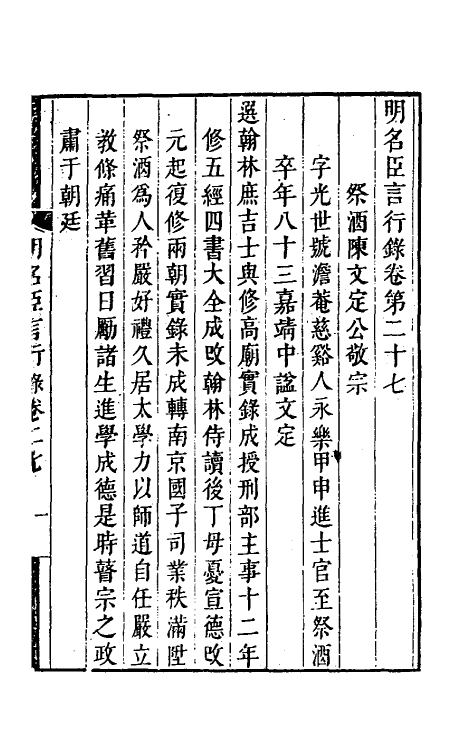 明名臣言行錄卷第二十七
祭酒陳文定公敬宗
字光世號澹菴慈谿人永樂甲申進士官至祭酒
卒年八十三嘉靖中諡文定
選翰林庶吉士典修高廟實錄成授刑部主事十二年
修五經四書大全成改翰林侍讀後丁母憂宣德改
元起復修兩朝實錄未成轉南京國子司業秩滿陞
祭酒為人矜嚴好禮久居太學力以師道自任嚴立
教條痛革舊習日勵諸生進學成德是時瞽宗之政
肅于朝廷
明名臣言行錄卷二七
一